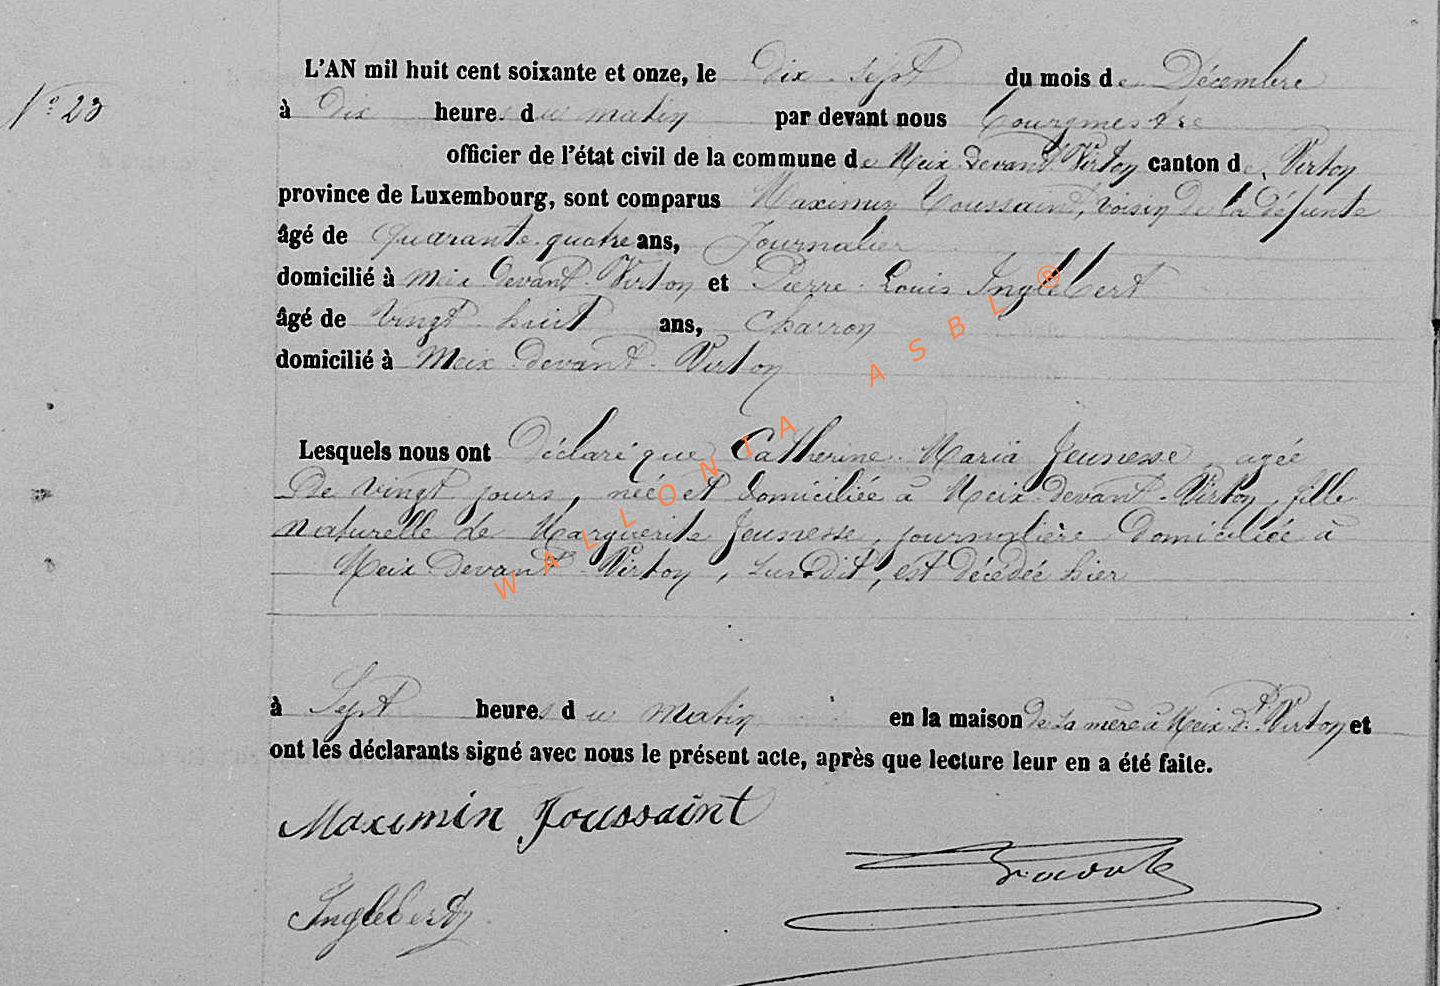 N° 23
L'AN mil huit cent soixante et onze, le dix-sept du mois de Décembre
à dix heures du matin par devant nous bourgmestre
officier de l'état civil de la commune de Meix devant Virton canton de Virton
province de Luxembourg, sont comparus Maximin Toussaint, voisin de la défunte
âgé de quarante-quatre ans, Journalier
domicilié à Meix devant Virton et Pierre Louis Inglebert
âgé de vingt huit ans, Charron
domicilié à Meix devant Virton
Lesquels nous ont déclaré que Catherine Maria Jeunesse, agée
de vingt jours, née et domiciliée à Meix-devant-Virton, fille
naturelle de Marguerite Jeunesse, journalière domiciliée à
Meix devant Virton, susdit, est décédée hier
à Sept heures du matin en la maison de sa mère à Meix dt. Virton et
ont les déclarants signé avec nous le présent acte, après que lecture leur en a été faite.
Maximin Toussaint
Inglebert
WALLONIA ASBL ®